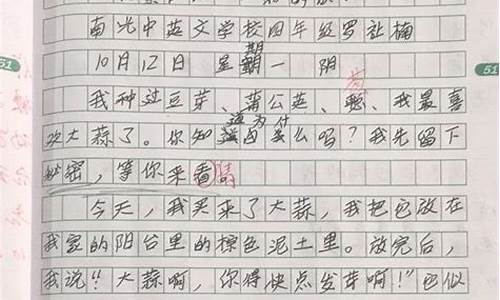 南光中英文学校四年级罗祉楠
10月12日 星期一 阴
我种过豆芽、蒲公英、葱、我最喜
欢大蒜了。你知道为什么吗?我先留下
秘密,等你来看。猜
今天,我买来了大蒜,我把它放在
我家的阳台里的棕色泥土里。放完后,
我说“大蒜啊,你得快点发芽啊!”它似
51